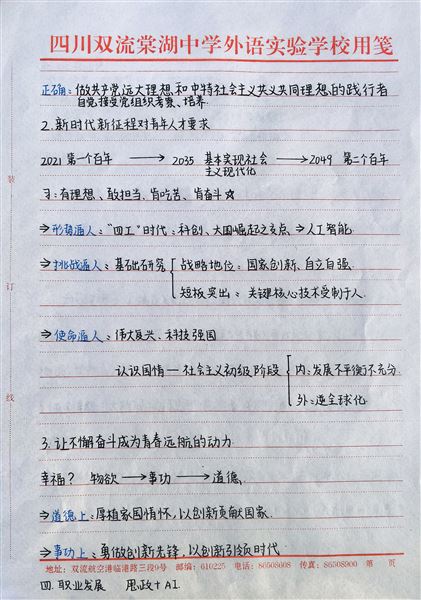 四川双流棠湖中学外语实验学校用笺
正确角:做共产党远大理想和中特社会主义共同理想的践行者
自觉接受党组织考察、培养.
2.新时代新征程对青年人才要求
2021 第一个百年 → 2035 基本实现社会主义现代化 → 2049 第二个百年
习:有理想、敢担当、肯吃苦、肯奋斗☆
⇒形势逼人:"四工"时代:科创、大国崛起之支点 ⇒人工智能.
⇒挑战逼人:基础研究 战略地位:国家创新、自立自强.
短板突出:关键核心技术受制于人.
⇒使命逼人:伟大复兴、科技强国
认识国情—社会主义初级阶段 内:发展不平衡不充分
外:逆全球化
3.让不懈奋斗成为青春远航的动力
幸福? 物欲→事功→道德.
⇒道德上:厚植家国情怀,以创新贡献国家.
⇒事功上:勇做创新先锋,以创新引领时代
地址:双流航空港临港路三段9号 邮编:610225 电话:86508608 传真:86508900 第 页
四.职业发展 思政+AI.
装
订
线